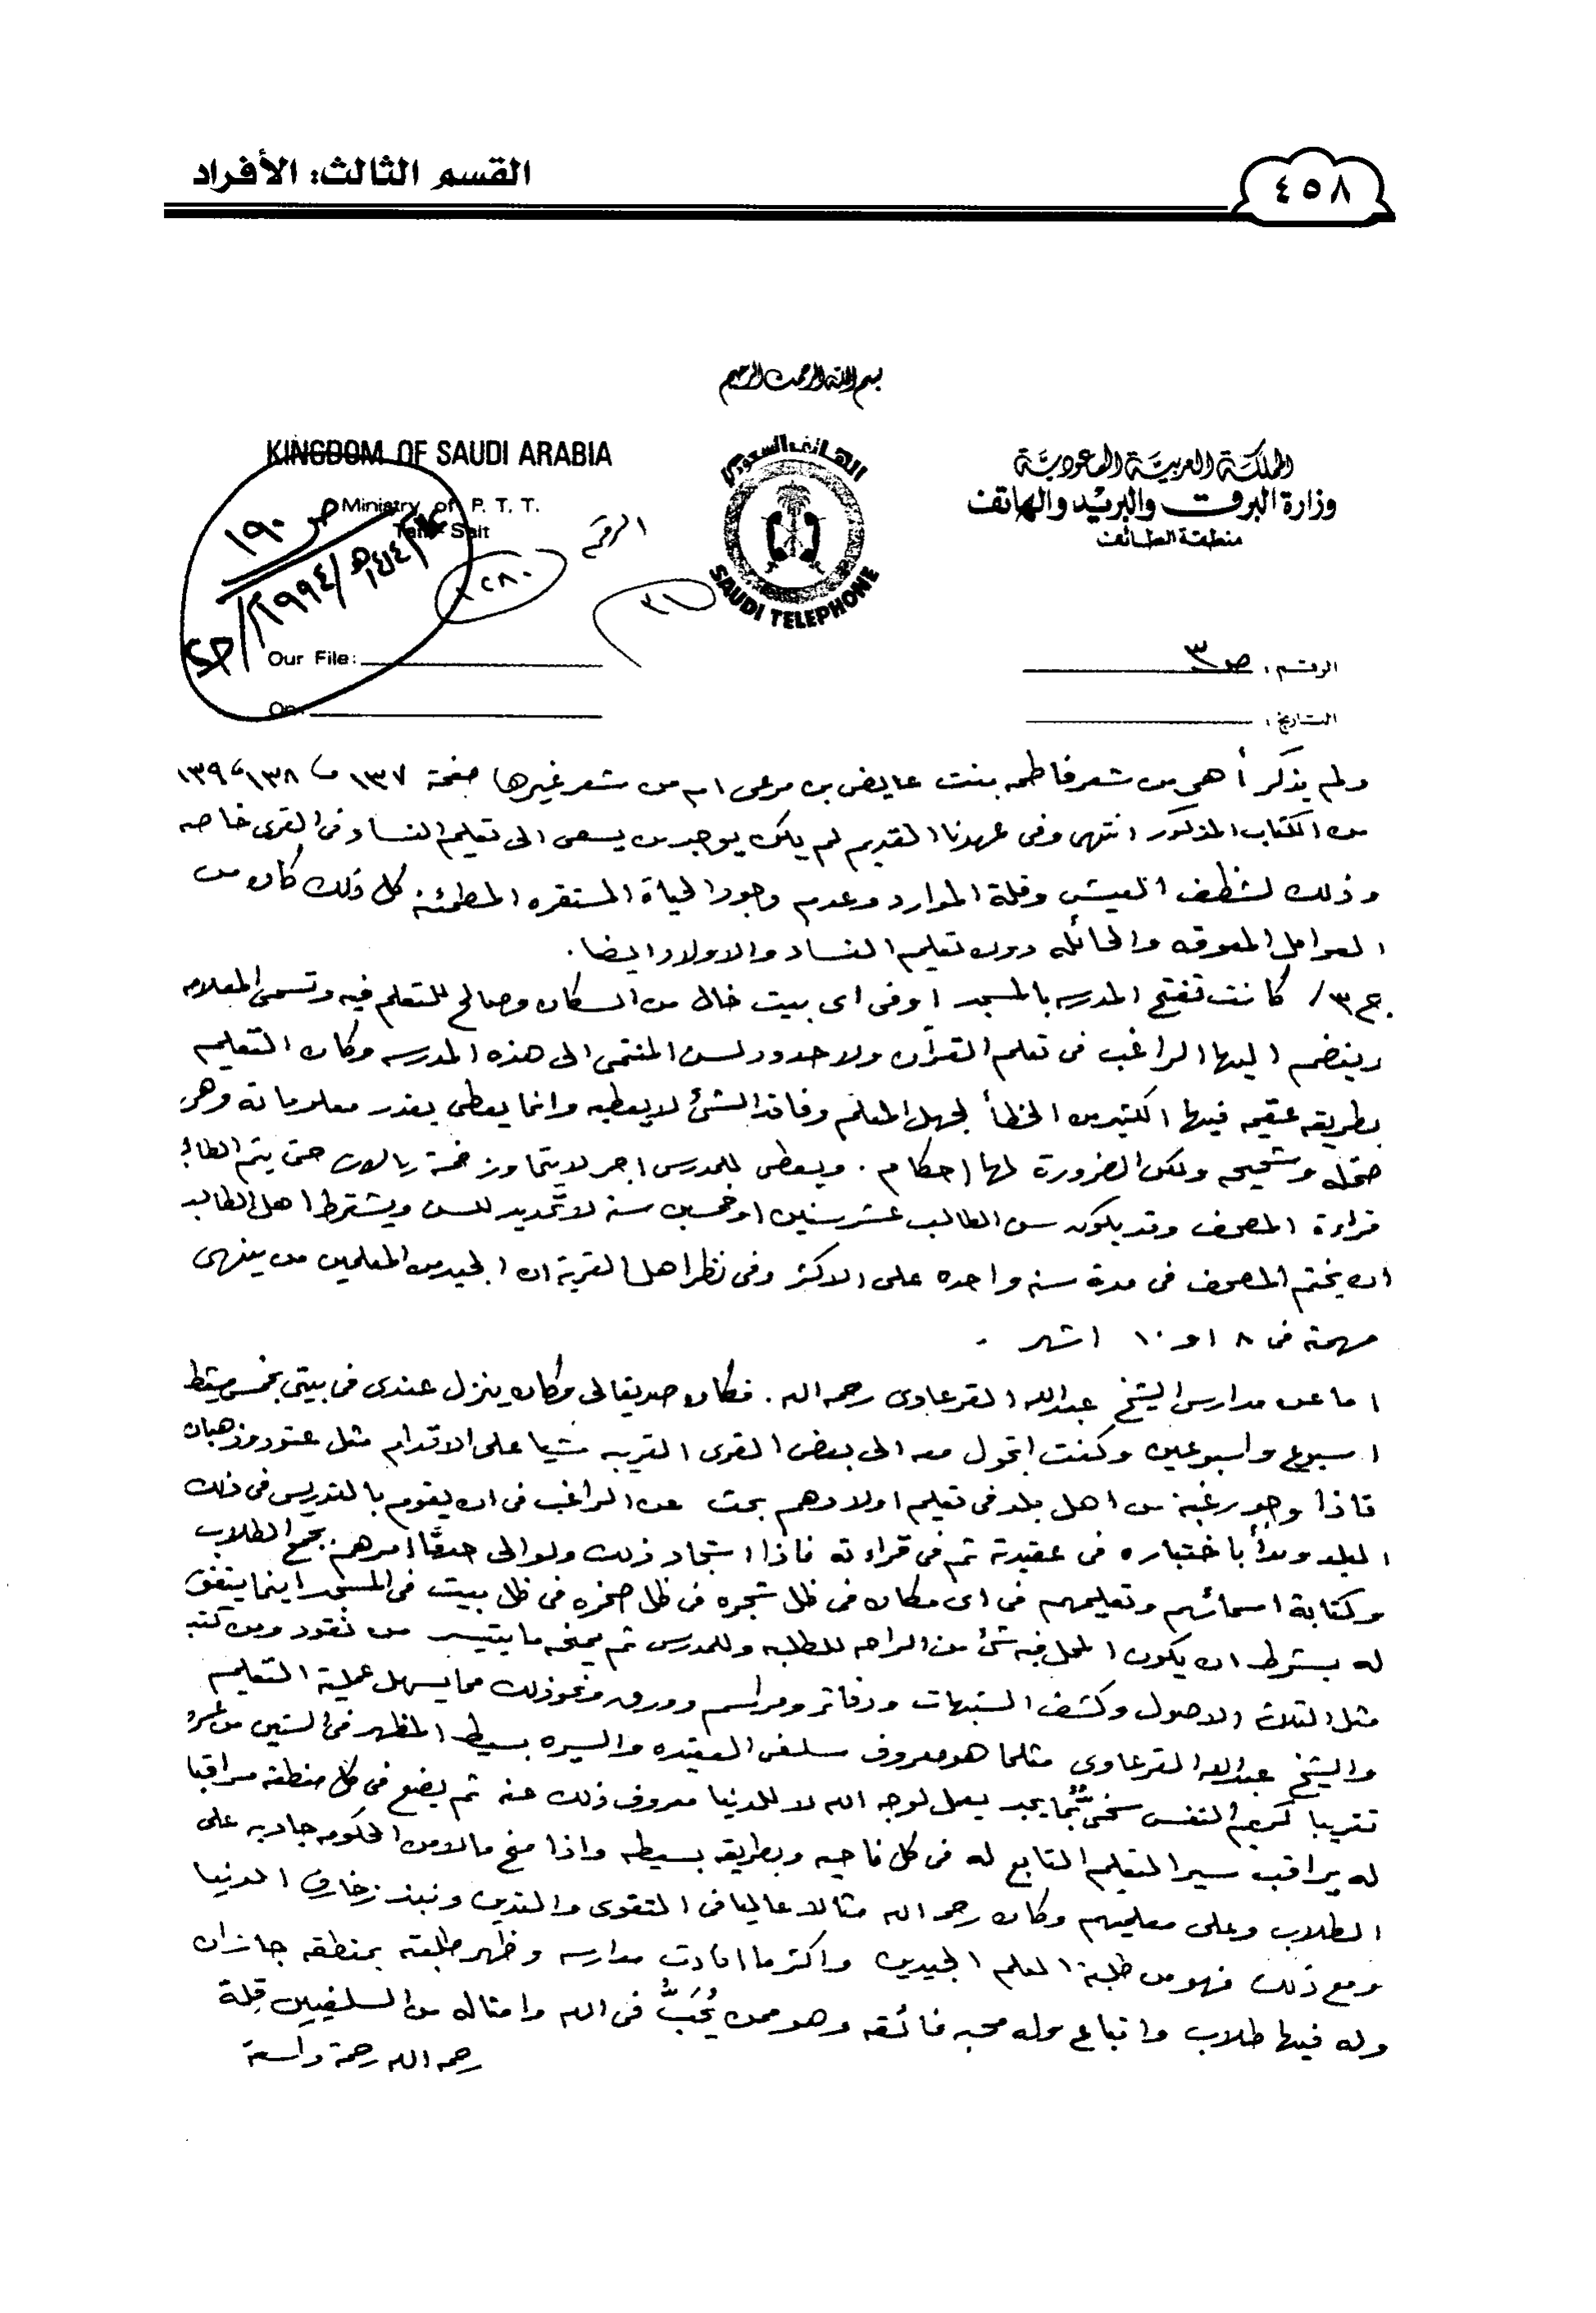 ٤٥٨
القسم الثالث: الأفراد
بسم الله الرحمن الرحيم
KINGDOM OF SAUDI ARABIA
Ministry of P. T. T.
Our File:
On
ص ١٩٠
١٤١٤هـ/١٩٩٤م
الرقم
١٢٨٠
الهاتف السعودي
SAUDI TELEPHONE
المملكة العربية السعودية
وزارة البرق والبريد والهاتف
منطقة الطائف
الرقم: ص٣
التاريخ:
ولم يذكر أهي من شعر فاطمه بنت عايض بن مرعى ام من شعر غيرها صفحة ١٣٧ ، ١٣٨ ، ١٣٩
من الكتاب المذكور انتهى وفى عهدنا القديم لم يكن يوجد من يسعى الى تعليم النساء وفى القرى خاصه
وذلك لشظف العيش وقلة الموارد وعدم وجود الحياة المستقره المطمئنه كل ذلك كان من
العوامل المعوقه والحائله دون تعليم النساء والاولاد ايضا.
ج٣/ كانت تفتح المدرسه بالمسجد اوفى اى بيت خال من السكان وصالح للتعلم فيه وتسمى المعلامه
وينضم اليها الراغب فى تعلم القرآن ولا حدود لسن المنتمى الى هذه المدرسه وكان التعليم
بطريقه عقيمه فيها الكثير من الخطأ لجهل المعلم وفاقد الشئ لا يعطيه وانما يعطى بقدر معلوماته وهى
ضحله وشحيحه ولكن الضرورة لها احكام . ويعطى للمدرس اجر لايتجاوز خمسة ريالات حتى يتم الطالب
قراءة المصحف وقد يكون سن الطالب عشر سنين او خمسين سنه لا تحديد للسن ويشترط اهل الطالب
ان يختم المصحف فى مدة سنه واحده على الاكثر وفى نظر اهل القرية ان الجيد من المعلمين من ينهى
مهمته فى ٨ او ١٠ اشهر .
اما عن مدارس الشيخ عبدالله القرعاوى رحمه الله . فكان صديقا لى وكان ينزل عندى فى بيتى بخميس مشيط
اسبوع واسبوعين وكنت اتجول معه الى بعض القرى القريبه مشيا على الاقدام مثل عتود وذهبان
فاذا وجد رغبة من اهل بلد فى تعليم اولادهم بحث عن الراغب فى ان يقوم بالتدريس فى ذلك
البلد وبدأ باختباره فى عقيدته ثم فى قراءته فاذا استجاد ذلك ولو الى حد ما امرهم بجمع الطلاب
وكتابة اسمائهم وتعليمهم فى اى مكان فى ظل شجره فى ظل صخره فى ظل بيت فى المسجد اينما يتفق
له بشرط ان يكون المحل فيه شئ من الراحه للطلبه وللمدرس ثم يمنحه ما يتيسر من نقود ومن كتب
مثل الثلاثة الاصول وكشف الشبهات ودفاتر ومراسم وورق ونحو ذلك مما يسهل عملية التعليم
والشيخ عبدالله القرعاوى مثلما هو معروف سلفى العقيده والسيره بسيط المظهر فى الستين من عمره
تقريبا كريم النفس سخىٌّ بما يجد يعمل لوجه الله لا للدنيا معروف ذلك عنه ثم يضع فى كل منطقه مراقبا
له يراقب سير التعليم التابع له فى كل ناحيه وبطريقه بسيطه واذا منح مالا من الحكومه جاد به على
الطلاب وعلى معلميهم وكان رحمه الله مثالا عاليا فى التقوى والتدين ونبذ زخارف الدنيا
ومع ذلك فهو من طلبة العلم الجيدين واكثر ما افادت مدارسه وظهر طلبته بمنطقه جازان
وله فيها طلاب واتباع وله محبه فائقه وهو ممن يُحَبُّ فى الله وامثاله من السلفيين قِلة
رحمه الله رحمة واسعة